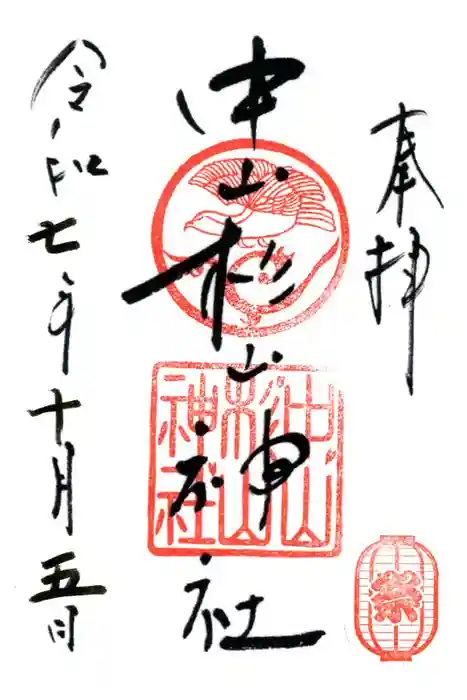 奉拝
中山杉山神社
中山杉山神社
祭
令和七年十月五日